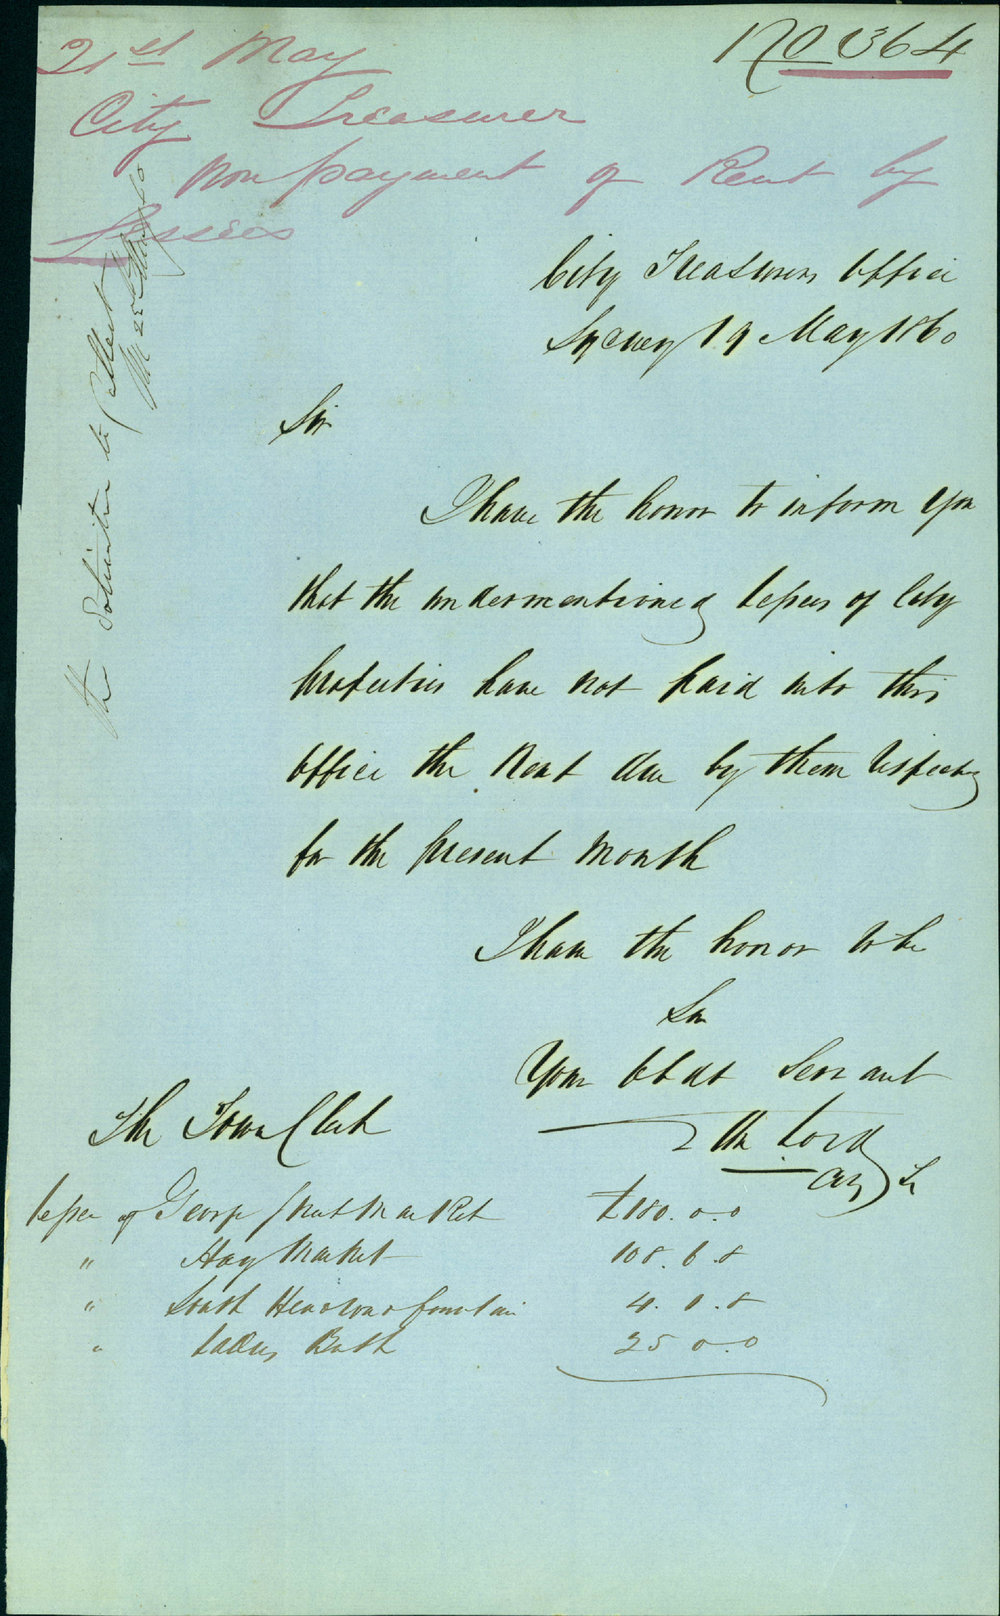 21st May
No 364
City Treasurer
Non payment of Rent by
Lessees
The Solicitor to Collect
City Treasurers Office
Sydney 19 May 1860
Sir
I have the honor to inform you
that the undermentioned Lessees of City
properties have not paid into this
office the Rent due by them respectg
for the present month
I have the honor to be
Sir
Your Obdt Servant
Lord
City Tr
The Town Clerk
Lessee of George Street Market £180.0.0
" Hay Market 108.6.8
" South Head Road fountain 4..8
" Ladies Bath 25 0.0